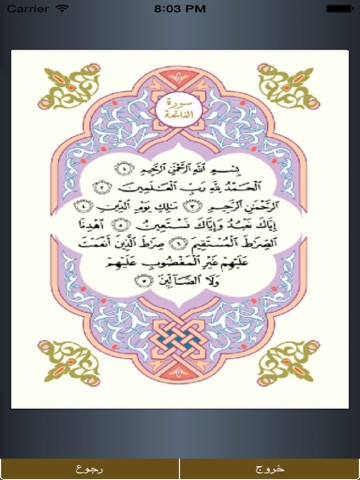 Carrier 8:03 PM
سورة
الفاتحة
بِسْمِ ٱللَّهِ ٱلرَّحْمَٰنِ ٱلرَّحِيمِ ١
ٱلْحَمْدُ لِلَّهِ رَبِّ ٱلْعَٰلَمِينَ ٢
ٱلرَّحْمَٰنِ ٱلرَّحِيمِ ٣ مَٰلِكِ يَوْمِ ٱلدِّينِ ٤
إِيَّاكَ نَعْبُدُ وَإِيَّاكَ نَسْتَعِينُ ٥ ٱهْدِنَا
ٱلصِّرَٰطَ ٱلْمُسْتَقِيمَ ٦ صِرَٰطَ ٱلَّذِينَ أَنْعَمْتَ
عَلَيْهِمْ غَيْرِ ٱلْمَغْضُوبِ عَلَيْهِمْ
وَلَا ٱلضَّآلِّينَ ٧
رجوع خروج